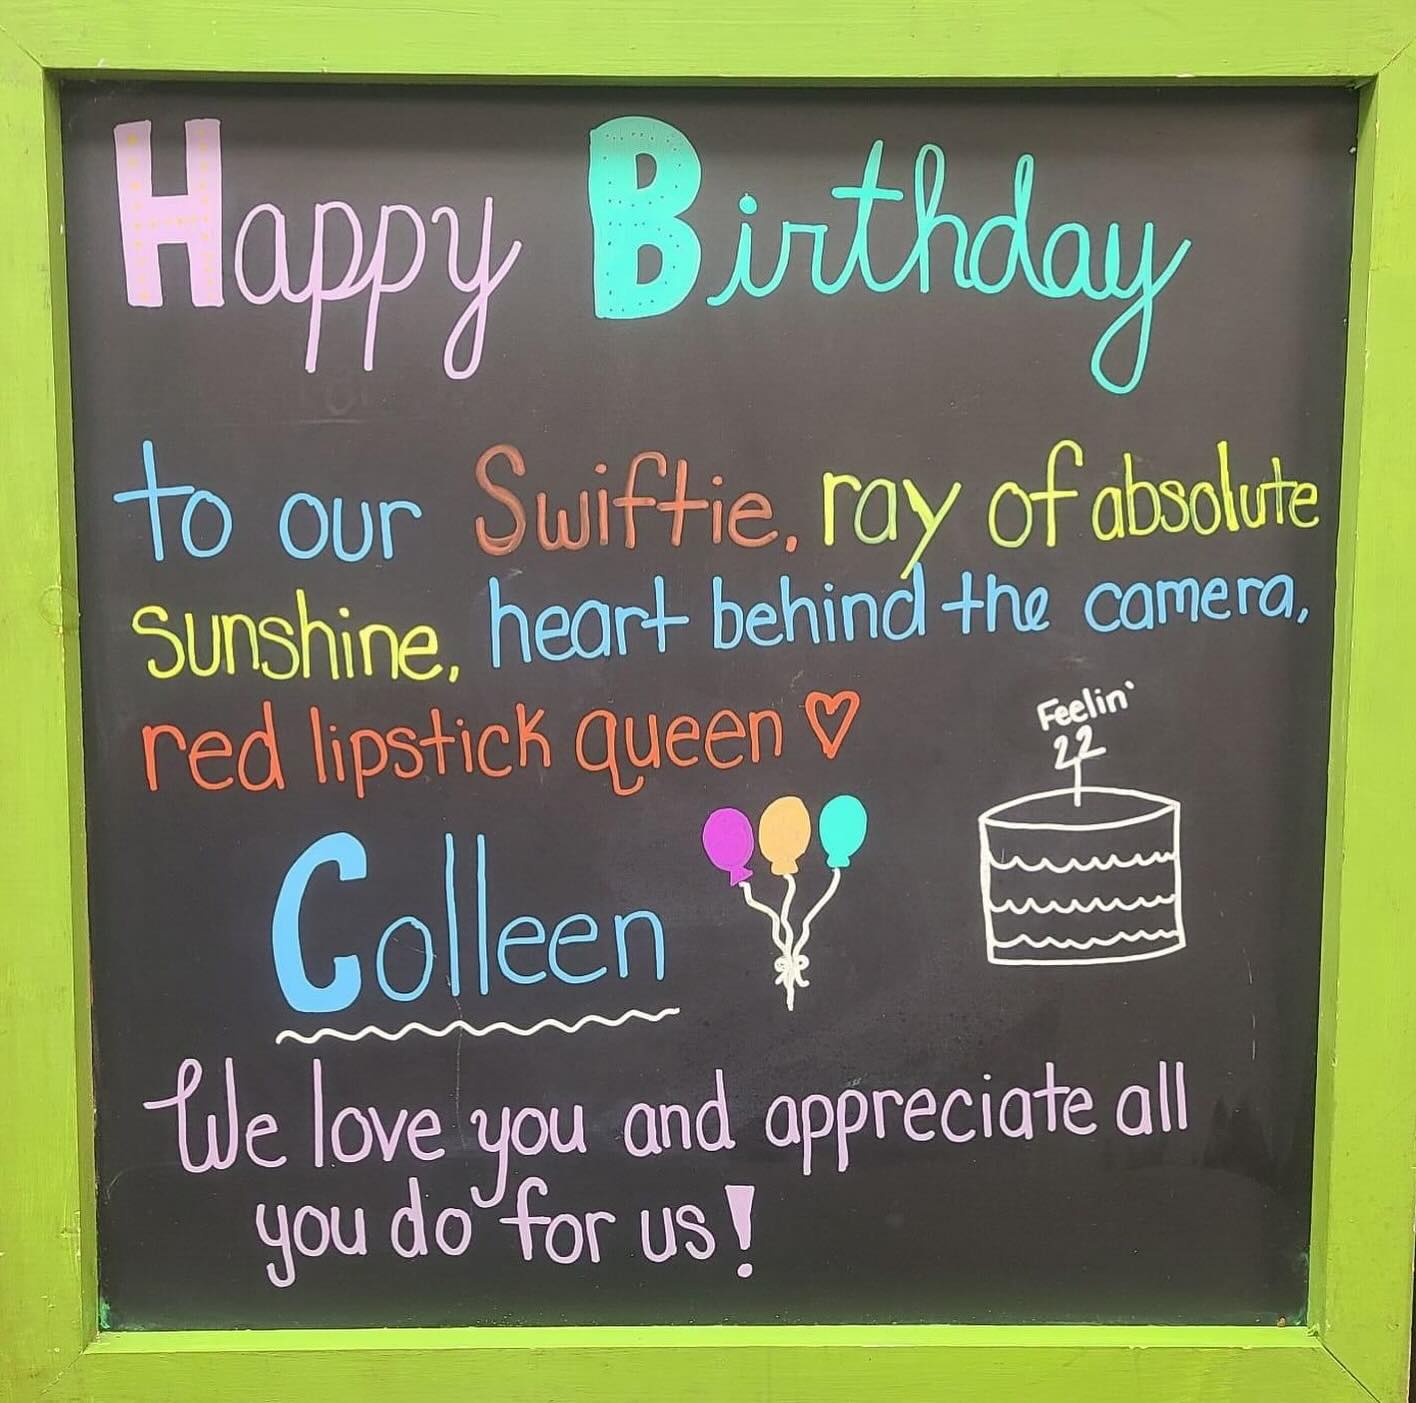 Happy Birthday
to our Swiftie, ray of absolute
sunshine, heart behind the camera,
red lipstick queen ♡
Feelin'
22
Colleen
We love you and appreciate all
you do for us!